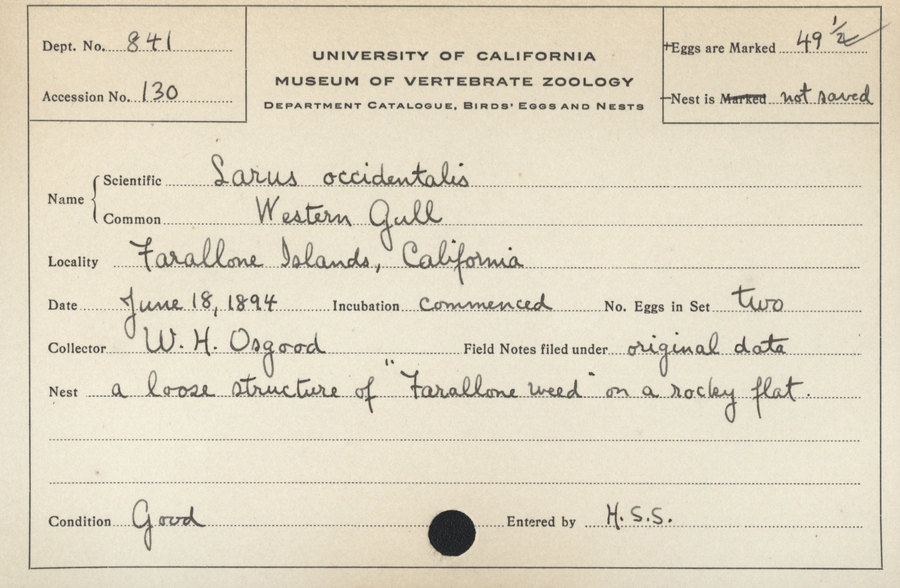 Dept. No. 841
Accession No. 130
UNIVERSITY OF CALIFORNIA
MUSEUM OF VERTEBRATE ZOOLOGY
DEPARTMENT CATALOGUE, BIRDS' EGGS AND NESTS
Eggs are Marked 49 1/2
Nest is Marked not saved
Name
Scientific Larus occidentalis
Common Western Gull
Locality Farallone Islands, California
Date June 18, 1894 Incubation commenced No. Eggs in Set two
Collector W. H. Osgood Field Notes filed under original data
Nest a loose structure of "Farallone weed" on a rocky flat.
Condition Good Entered by H.S.S.